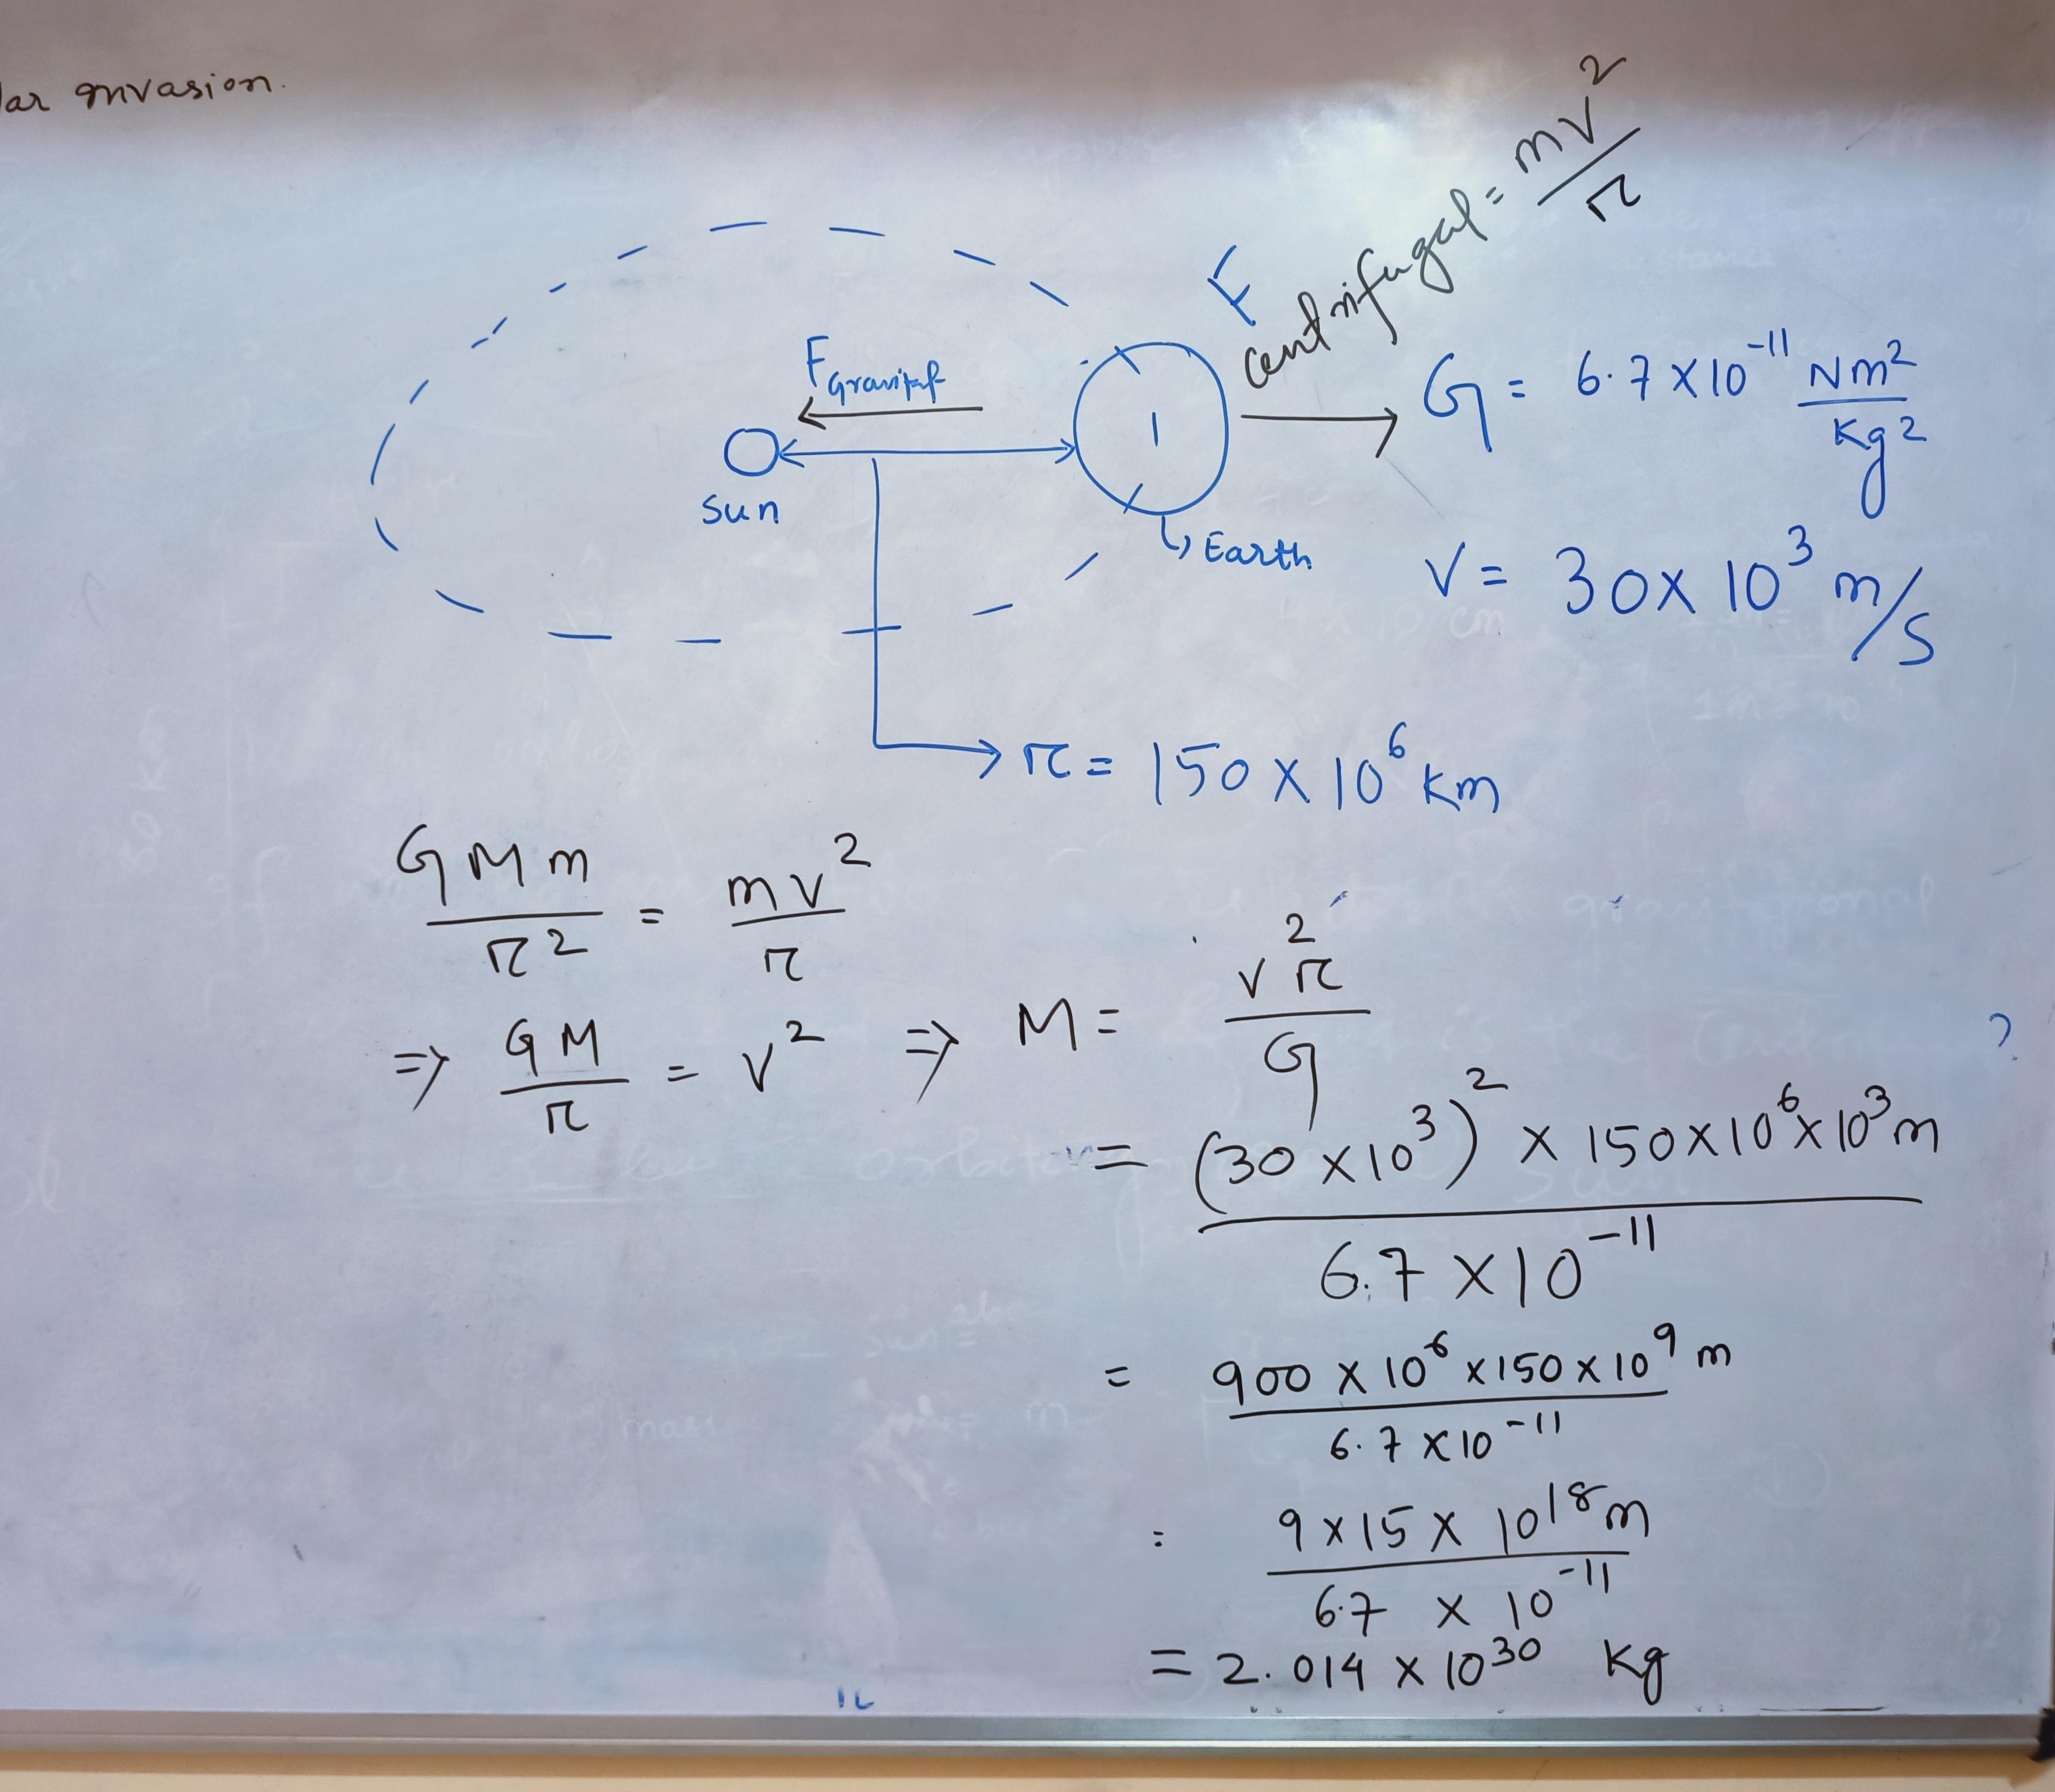 invasion.
F centrifugal = mv²/r
F Gravitat
G = 6.7 × 10⁻¹¹ Nm²/Kg²
Sun
Earth
V = 30 × 10³ m/s
r = 150 × 10⁶ km
GMm/r² = mv²/r
⇒ GM/r = v² ⇒ M = v²r/G
= (30 × 10³)² × 150 × 10⁶ × 10³ m / 6.7 × 10⁻¹¹
= 900 × 10⁶ × 150 × 10⁹ m / 6.7 × 10⁻¹¹
= 9 × 15 × 10¹⁸ m / 6.7 × 10⁻¹¹
= 2.014 × 10³⁰ Kg